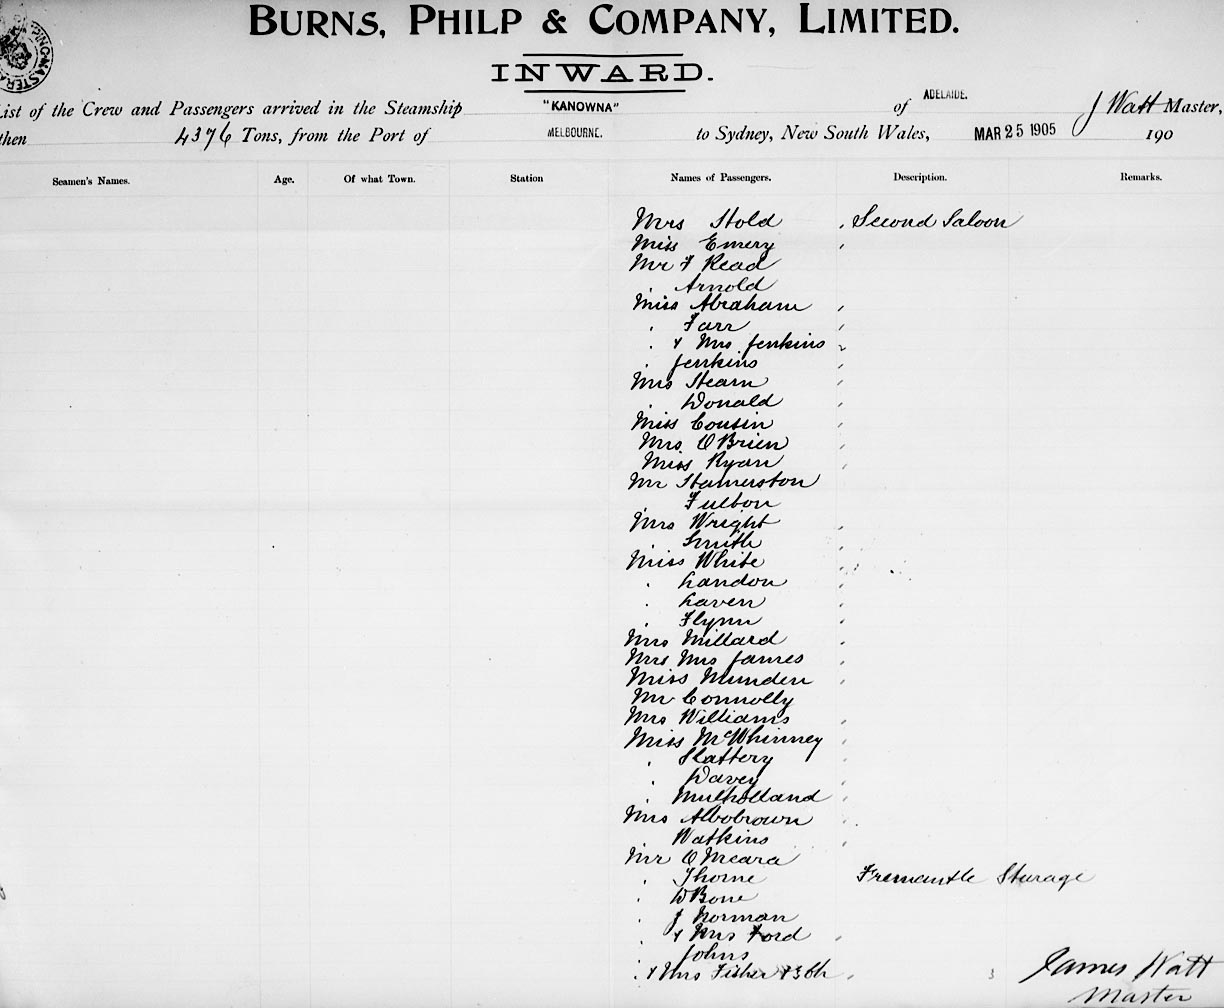 BURNS, PHILP & COMPANY, LIMITED.
INWARD.
List of the Crew and Passengers arrived in the Steamship "KANOWNA" of ADELAIDE. J Watt Master,
then 4376 Tons, from the Port of MELBOURNE. to Sydney, New South Wales, MAR 25 1905 190
Seamen's Names. Age. Of what Town. Station Names of Passengers. Description. Remarks.
Mrs Hold , Second Saloon
Miss Emery ,
Mr F Read
. Arnold
Miss Abraham ,
. Farr ,
. & Mrs Jenkins 2
. Jenkins ,
Mrs Hearn ,
. Donald ,
Miss Cousin ,
Mrs O'Brien ,
Miss Ryan ,
Mr Stamerston
Fulton
Mrs Wright ,
. Smith ,
Miss White ,
. Landon ,
. Laven ,
. Flynn ,
Mrs Millard ,
Mrs James ,
Miss Munden ,
Mr Connolly
Mrs Williams ,
Miss McWhinney ,
. Slattery ,
. Davey ,
. Mulholland ,
Mrs Albobrown ,
Watkins ,
Mr O'Meara
. Thorne Fremantle Sturage
. D Bone
. J Norman
. & Mrs Ford ,
. Johns
. & Mrs Fisher & 3 Ch , 3
James Watt
Master